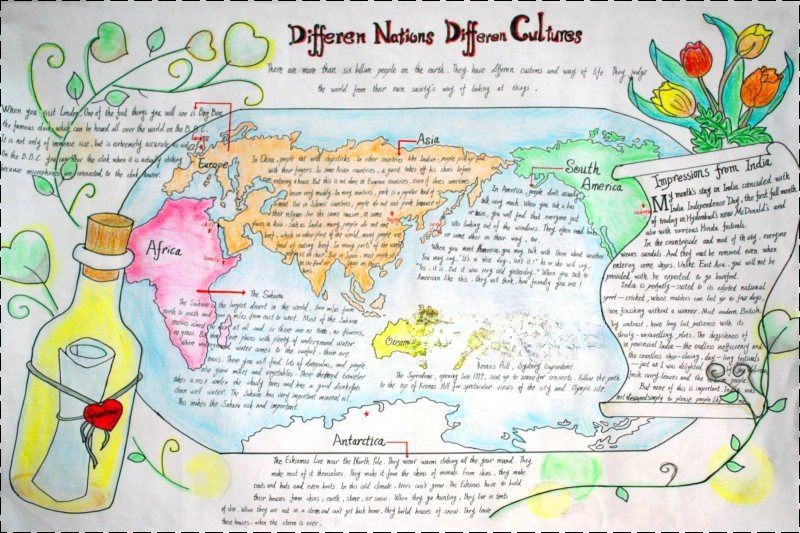 Differen Nations Differen Cultures
There are more than six billion people on the earth. They have differen customs and way of life. They judge
the world from their own saciety's way of looking at things.
When you visit London, One of the foist things you will see is Big Ben,
the famous clock which can be heard all over the world on the B.B.C.
it is not only of immense size, but is extremely accurate as well
On the B.B.C. you can hear the clock when it is actually striking
because microphones are connected to the clock tower.
Europe
Asia
In China, people eat with chopsticks. In other countries like Indian, people pick up food
with their fingers. In some Asian countries, a guest takes off his shoes before
entering house. But this is not done at European countries, even if shoes sometimes
become very muddy. In many countries, pork is a popular kind of
meat. But in Islamic countries, people do not eat pork because of
their religion. For the same reason, in some
places in Asia, such as India, many people do not eat
beef, which in other places of the world, many people are
fond of eating beef. In many parts of the world
South
America
In America, people don't usually
talk very much. When you take a bus
or train, you will find that everyone just
sits looking out of the windows. They often read
in some other as their way, too.
When you meet America, you may talk with them about weather
You may say: "It's a nice day, isn't it?" he or she will say
"Yes, it is. But it was very cold yesterday." When you talk to
American like this, they will think, how friendly you are!
Africa
The Sahara
The Sahara is the largest desert in the world, two miles from
north to south and miles from east to west. Most of the Sahara
receives almost no rain at all and so there are no trees, no flowers,
no grass. But places with plenty of underground water.
Where water comes to the surface, there are
oases. There you will find lots of datepalms, and people
also grow millets and vegetables. The desert traveler
takes a rest under the shady trees and has a good drink of
clean well water. The Sahara has very important mineral oil.
This makes the Sahara rich and important.
Ocean
Kronos Hill, Sydney Superdome
The Superdome, opening late 1999, seat up to 20000 for concerts. Follow the path
to the top of Kronos Hill for spectacular views of the city and Olympic site.
Antarctica
The Eskimos live near the North Pole. They wear warm clothing all the year round. They
make most of it themselves. They make it from the skins of animals. From skins, they make
coats and hats and even boots. In this cold climate, trees can't grow. The Eskimos have to build
their houses from skins, earth, stone, or snow. When they go hunting, they live in tents
of skin. When they are out in a storm and can't get back home, they build houses of snow. They leave
these houses, when the storm is over.
Impressions from India
My month's stay in India coincided with
India Independence Day, the first full month
of trading in Hyderabad's new McDonald's and
also with various Hindu festivals.
In the countryside and most of the city, everyone
wears sandals. And they must be removed even when
entering some shops. Unlike East Asia, you will not be
provided with, be expected to go barefoot.
India is perfectly-suited to its adopted national
sport - cricket, whose matches can last up to five days,
even finishing without a winner. Most modern British,
by contrast, have long lost patience with its
slowly-unravelling plots. The doggishness of
provincial India - the endless inefficiency and
the ceaseless shop-closing, day-long festivals
- just as I was delighted of the delicious
fresh curry-leaves and the people.
But none of this is important. India was
not designed simply to please people like